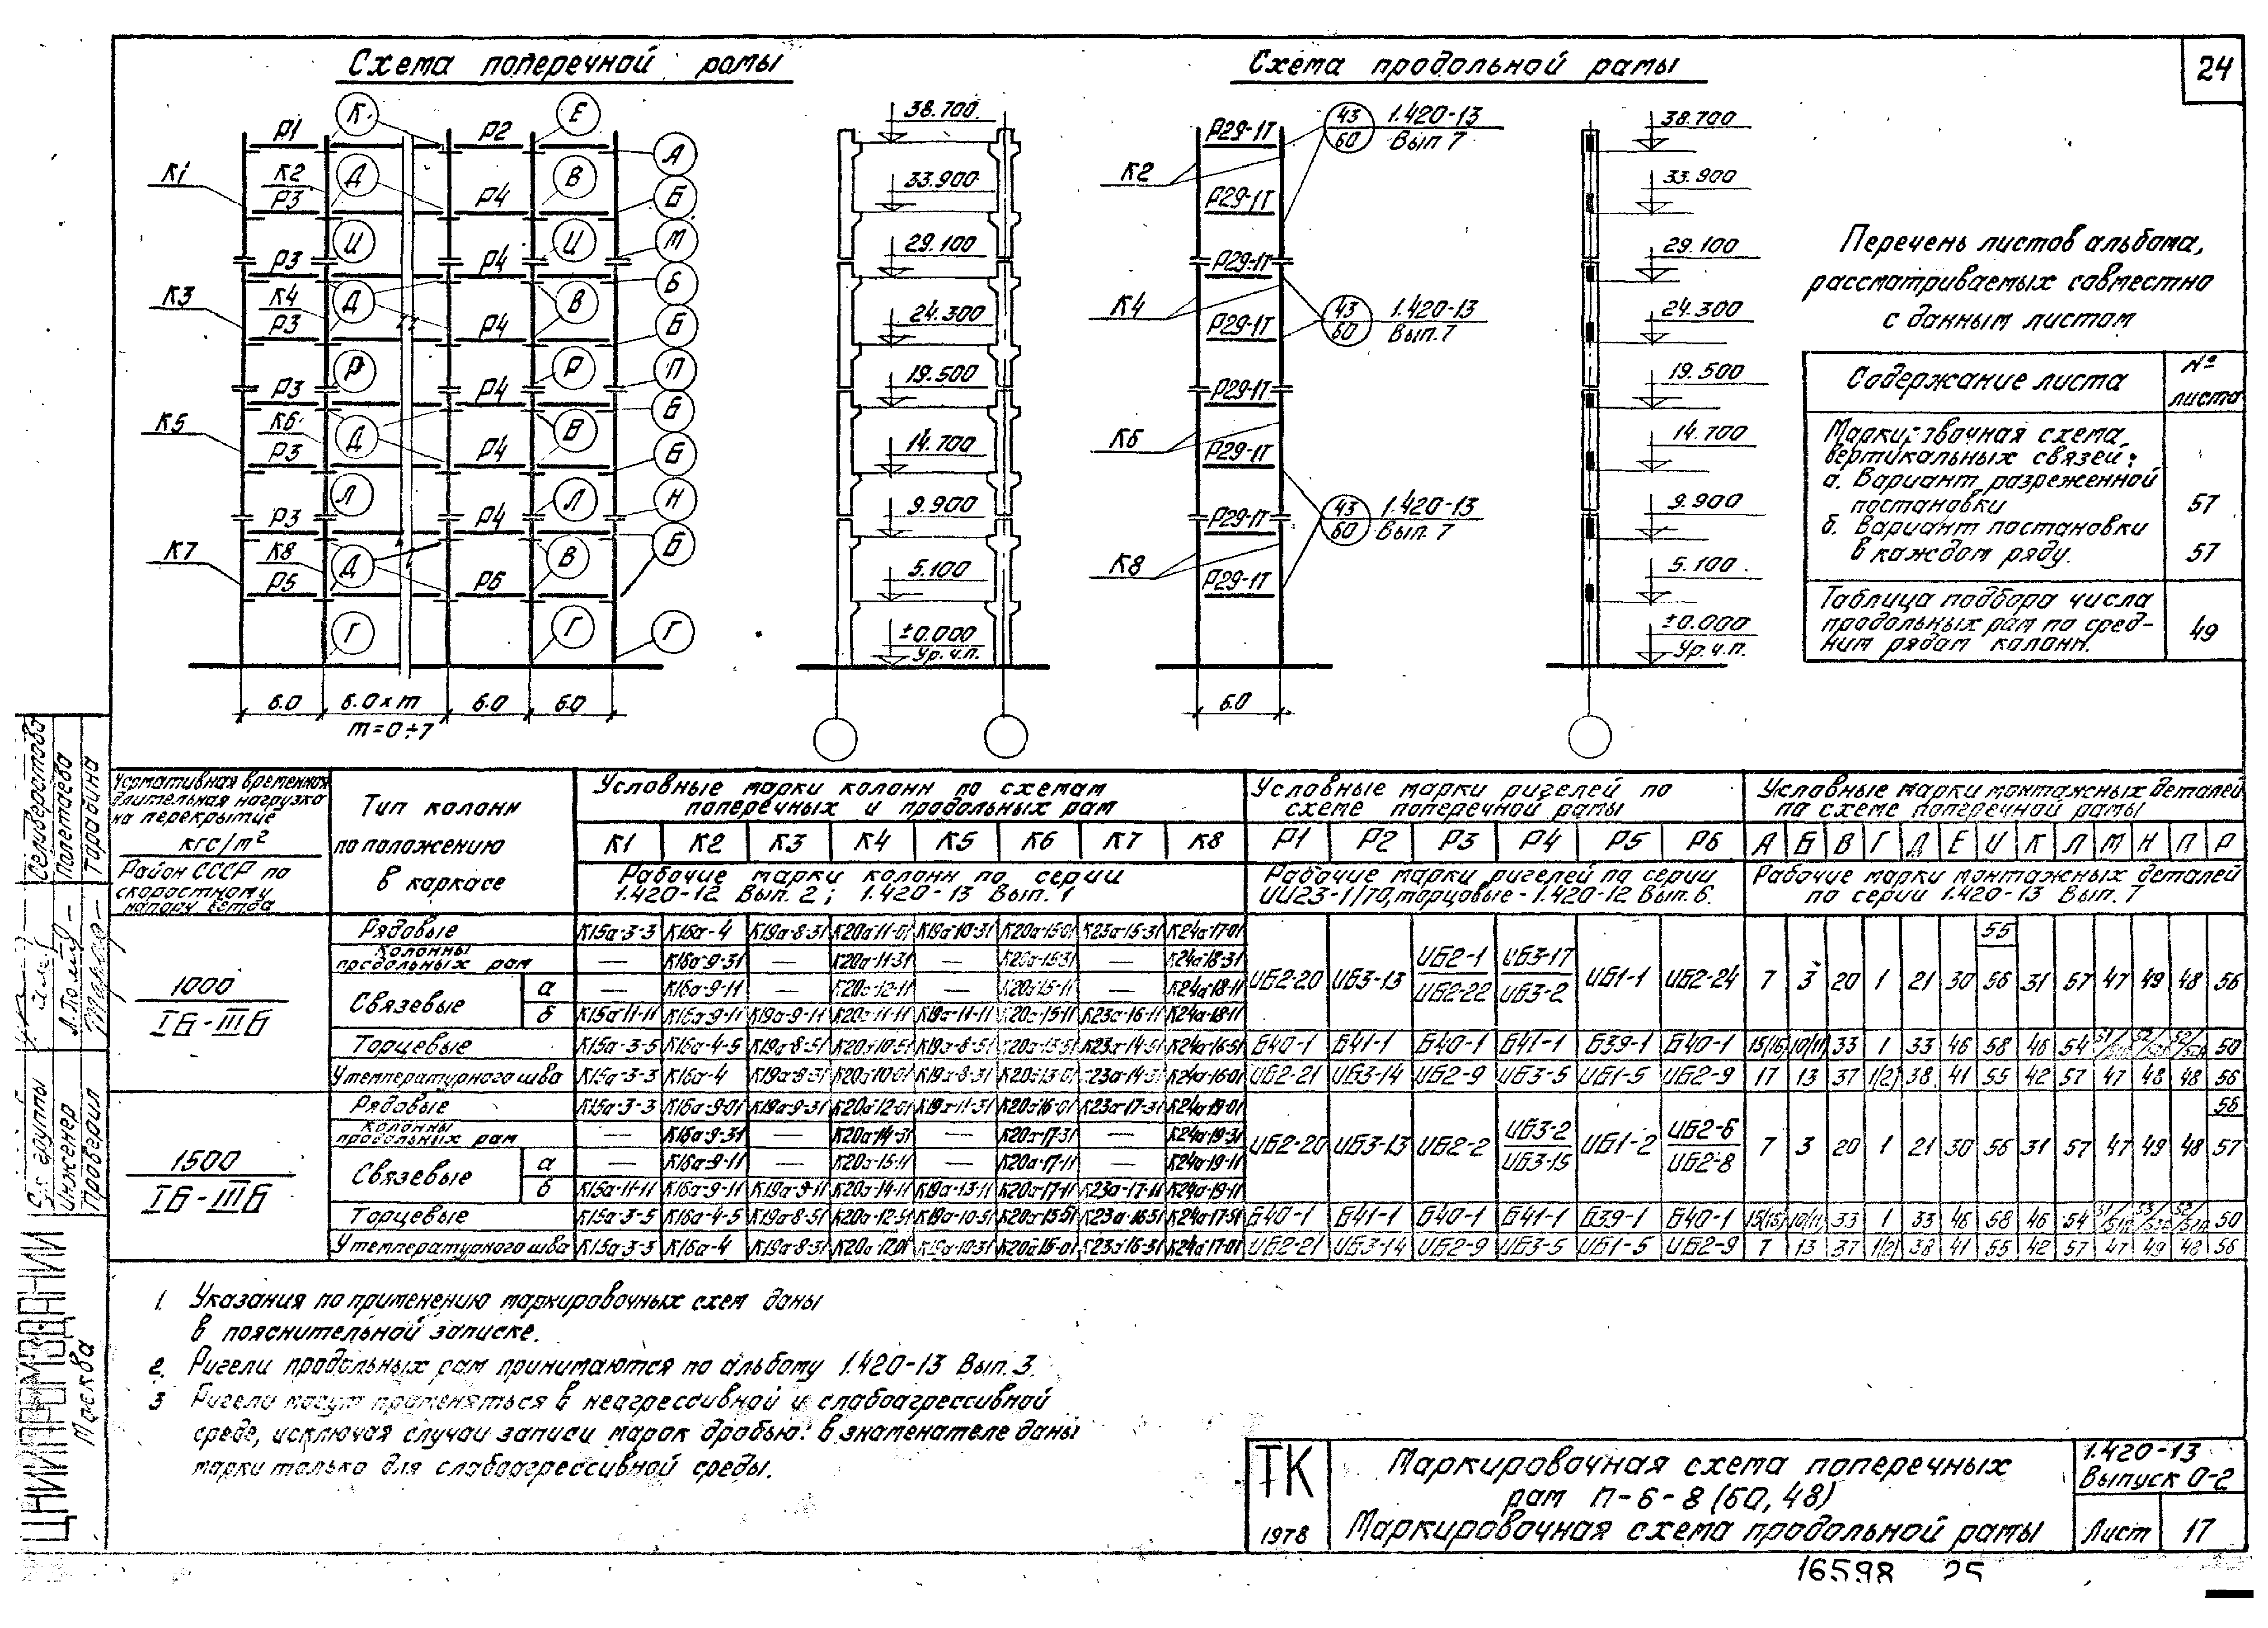 24
Схема поперечной рамы
Схема продольной рамы
Р1 К Р2 Е А
К1 К2 Д В
Р3 Р4 Б
И И М
Р3 Р4 Б
К3 К4 Д В
Р3 Р4 Б
Р Р П
Р3 Р4 Б
К5 К6 Д В
Р3 Р4 Б
Л Л Н
Р3 Р4 Б
К7 К8 Д В
Р5 Р6
Г Г Г
6.0 6.0 х m 6.0 6.0
m=0÷7
38.700
33.900
29.100
24.300
19.500
14.700
9.900
5.100
±0.000
Ур.ч.п.
Р29-1Т 43 1.420-13
60 Вып 7
К2
Р29-1Т
Р29-1Т
К4 43 1.420-13
Р29-1Т 60 Вып.7
Р29-1Т
К6
Р29-1Т
Р29-1Т 43 1.420-13
60 Вып. 7
К8
Р29-1Т
6.0
38.700
33.900
29.100
24.300
19.500
14.700
9.900
5.100
±0.000
Ур.ч.п.
Перечень листов альбома,
рассматриваемых совместно
с данным листом
Содержание листа № листа
Маркировочная схема
вертикальных связей:
а. Вариант разреженной
постановки 57
б. Вариант постановки
в каждом ряду. 57
Таблица подбора числа
продольных рам по сред-
ним рядам колонн. 49
Нормативная временная
длительная нагрузка
на перекрытие
кгс/м²
Район СССР по
скоростному
напору ветра
Тип колонн
по положению
в каркасе
Условные марки колонн по схемам
поперечных и продольных рам
К1 К2 К3 К4 К5 К6 К7 К8
Рабочие марки колонн по серии
1.420-12 Вып. 2; 1.420-13 Вып. 1
Условные марки ригелей по
схеме поперечной рамы
Р1 Р2 Р3 Р4 Р5 Р6
Рабочие марки ригелей по серии
ИИ23-1/70, торцовые - 1.420-12 Вып. 6.
Условные марки монтажных деталей
по схеме поперечной рамы
А Б В Г Д Е И К Л М Н П Р
Рабочие марки монтажных деталей
по серии 1.420-13 Вып. 7
1000
IБ-IIIБ
Рядовые К15а-3-3 К16а-4 К19а-8-31 К20а-11-01 К19а-10-31 К20а-15-01 К23а-15-31 К24а-17-01
Колонны
продольных рам — К16а-9-31 — К20а-11-31 — К20а-15-31 — К24а-18-31
Связевые а — К16а-9-11 — К20а-12-11 — К20а-15-11 — К24а-18-11
б К15а-11-11 К16а-9-11 К19а-9-11 К20а-11-11 К19а-11-11 К20а-15-11 К23а-16-11 К24а-18-11
ИБ2-20 ИБ3-13 ИБ2-1/ИБ2-22 ИБ3-17/ИБ3-2 ИБ1-1 ИБ2-24 7 3 20 1 21 30 55/56 31 57 47 49 48 56
Торцевые К15а-3-5 К16а-4-5 К19а-8-51 К20а-10-51 К19а-8-51 К20а-13-51 К23а-14-51 К24а-16-51 Б40-1 Б41-1 Б40-1 Б41-1 Б39-1 Б40-1 15(16) 10(11) 33 1 33 46 58 46 54 50
У температурного шва К15а-3-3 К16а-4 К19а-8-31 К20а-10-01 К19а-8-31 К20а-13-01 К23а-14-31 К24а-16-01 ИБ2-21 ИБ3-14 ИБ2-9 ИБ3-5 ИБ1-5 ИБ2-9 17 13 37 1(2) 38 41 55 42 57 47 48 48 56
1500
IБ-IIIБ
Рядовые К15а-3-3 К16а-9-01 К19а-9-31 К20а-12-01 К19а-11-31 К20а-16-01 К23а-17-31 К24а-19-01
Колонны
продольных рам — К16а-9-31 — К20а-14-31 — К20а-17-31 — К24а-19-31
Связевые а — К16а-9-11 — К20а-15-11 — К20а-17-11 — К24а-19-11
б К15а-11-11 К16а-9-11 К19а-9-11 К20а-14-11 К19а-13-11 К20а-17-11 К23а-17-11 К24а-19-11
ИБ2-20 ИБ3-13 ИБ2-2 ИБ3-2/ИБ3-15 ИБ1-2 ИБ2-6/ИБ2-8 7 3 20 1 21 30 56 31 57 47 49 48 56/57
Торцевые К15а-3-5 К16а-4-5 К19а-8-51 К20а-12-51 К19а-10-51 К20а-15-51 К23а-16-51 К24а-17-51 Б40-1 Б41-1 Б40-1 Б41-1 Б39-1 Б40-1 15(16) 10(11) 33 1 33 46 58 46 54 50
У температурного шва К15а-3-3 К16а-4 К19а-8-31 К20а-12-01 К19а-10-31 К20а-15-01 К23а-16-31 К24а-17-01 ИБ2-21 ИБ3-14 ИБ2-9 ИБ3-5 ИБ1-5 ИБ2-9 7 13 37 1(2) 38 41 55 42 57 47 49 48 56
1. Указания по применению маркировочных схем даны
в пояснительной записке.
2. Ригели продольных рам принимаются по альбому 1.420-13 Вып. 3.
3 Ригели могут применяться в неагрессивной и слабоагрессивной
среде, исключая случаи записи марок дробью: в знаменателе даны
марки только для слабоагрессивной среды.
ТК
1978
Маркировочная схема поперечных
рам П-6-8 (60, 48)
Маркировочная схема продольной рамы
1.420-13
Выпуск 0-2
Лист 17
16598 25
Селиверстова
Полетаева
Тарабина
Рук группы
Инженер
Проверил
ЦНИИПРОМЗДАНИЙ
Москва